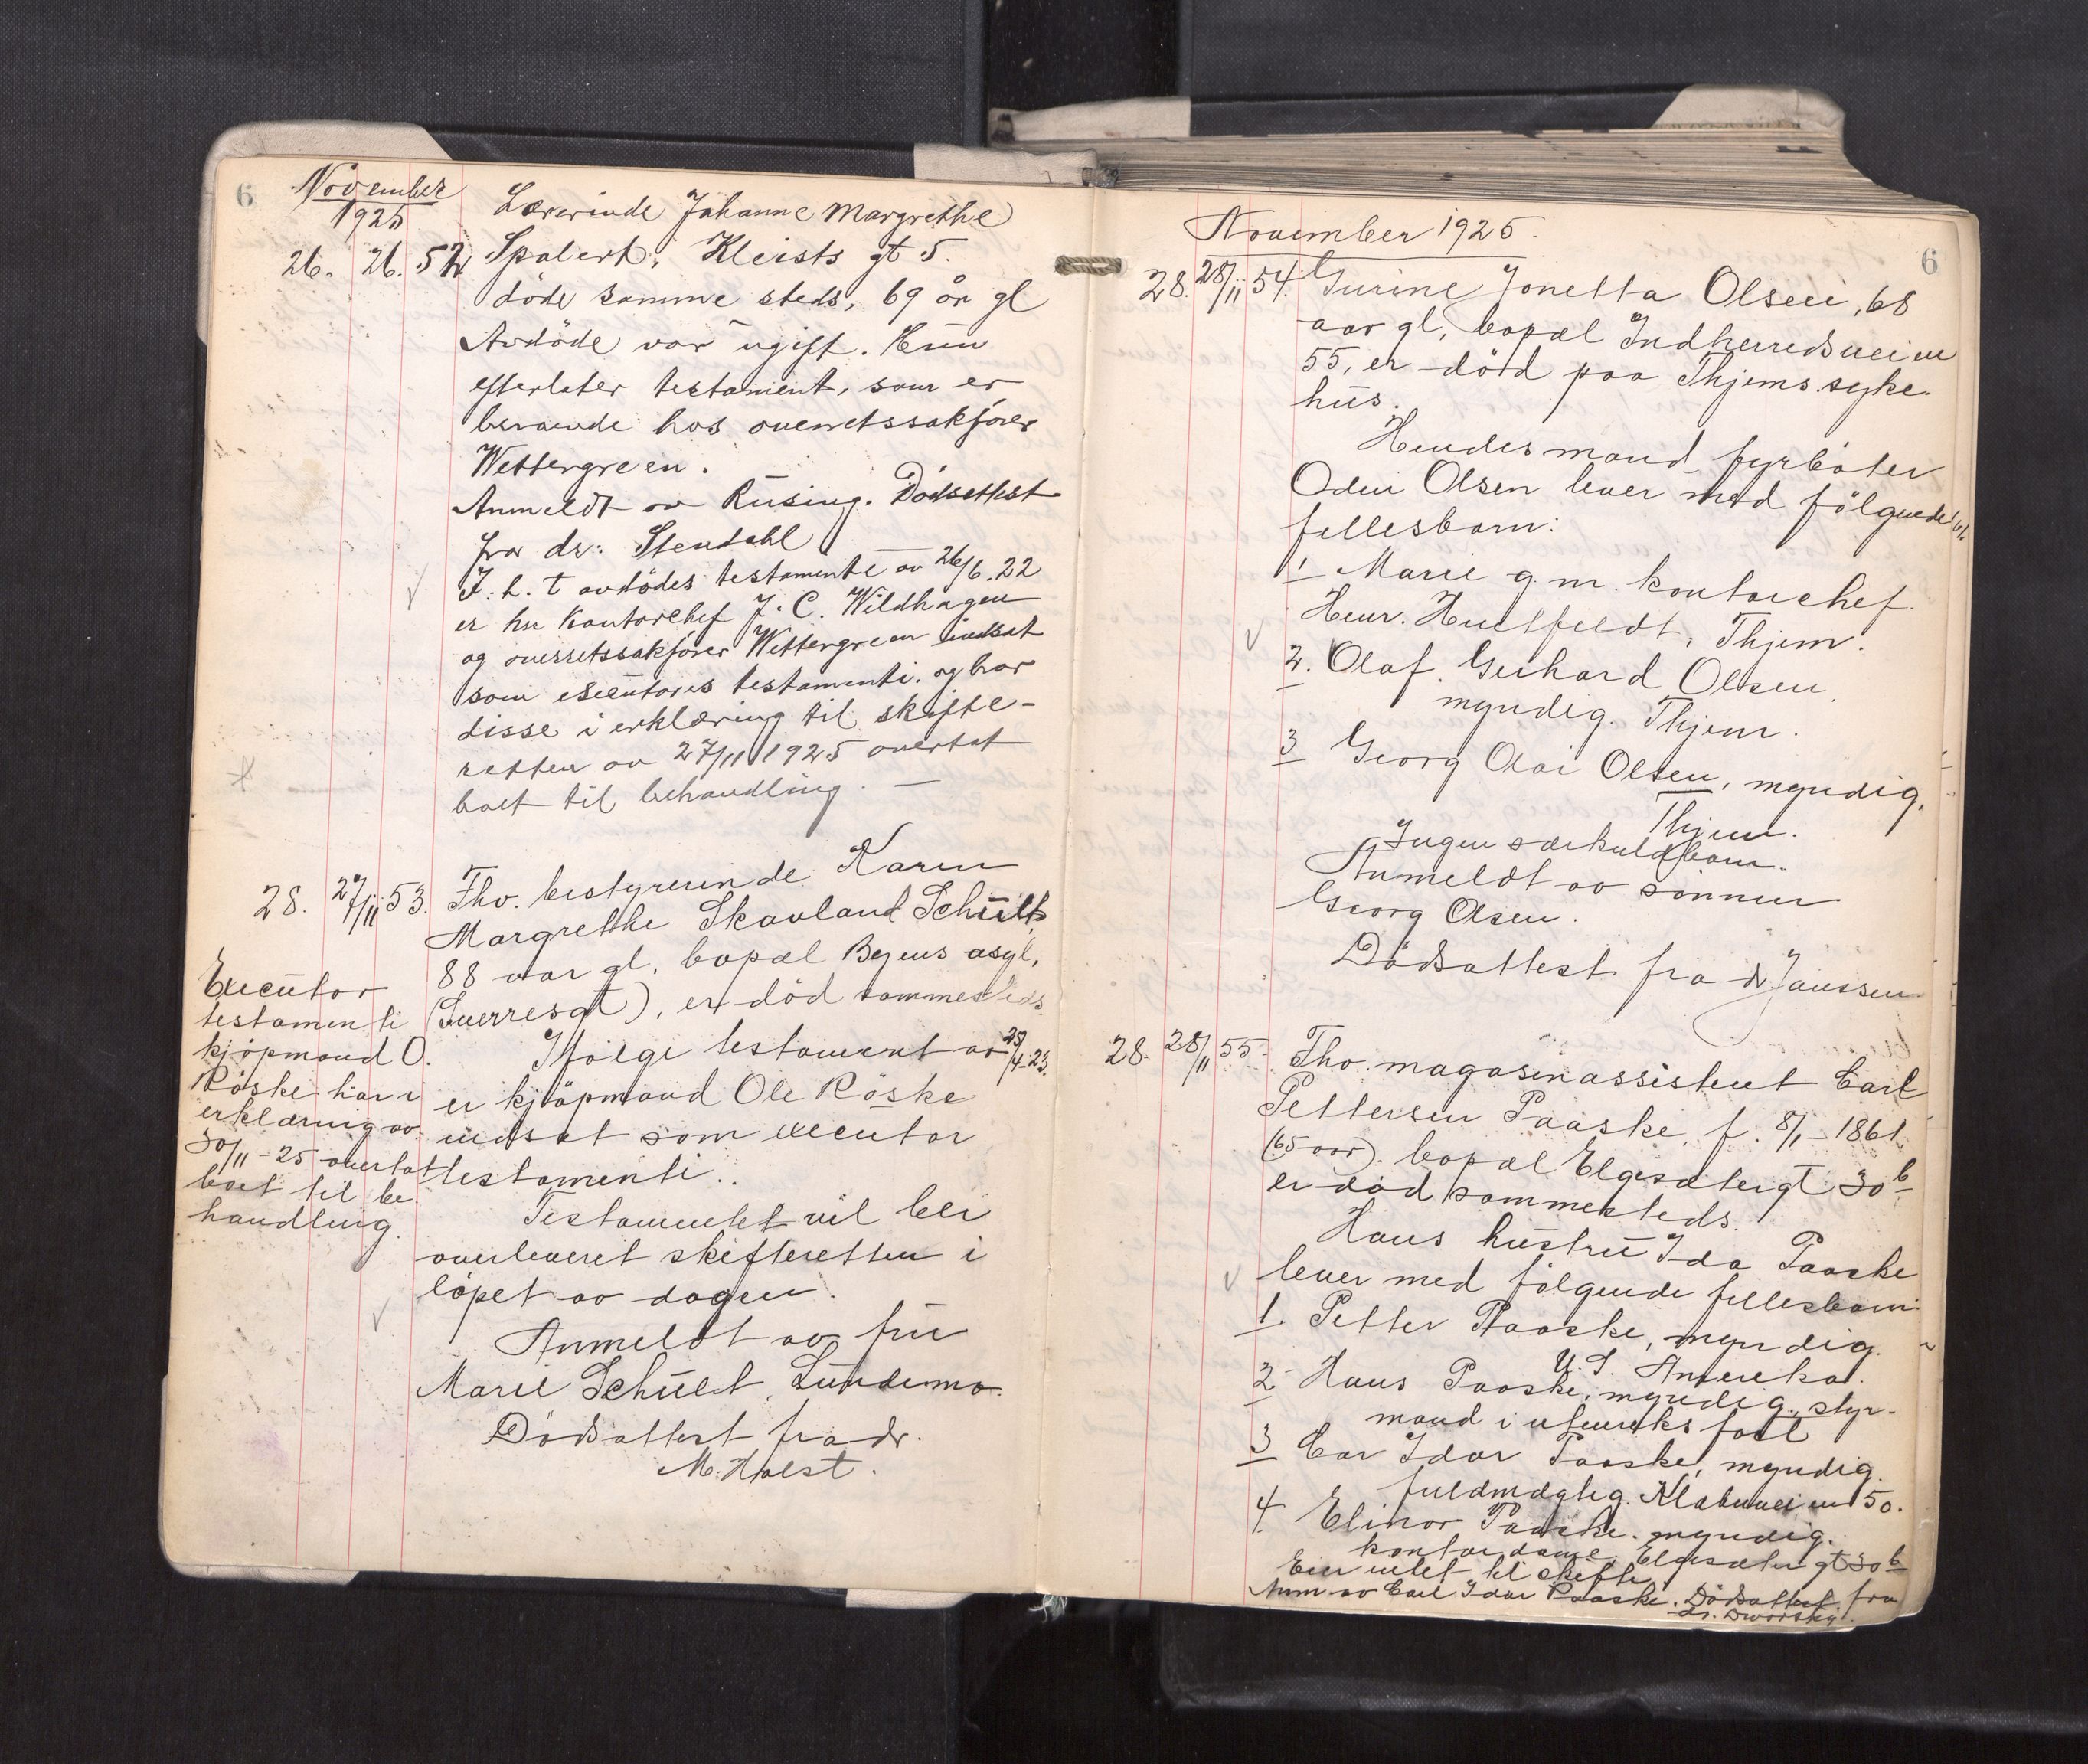 6
November
1925
26. 26. 52
Lærerinde Johanne Margrethe
Spalert, Kleists gt 5.
döde samme steds, 69 år gl
Avdöde var ugift. Hun
efterlater testament, som er
beroende hos overretssakförer
Wettergreen.
Anmeldt av Rusing. Dödsattest
fra dr: Stendahl
I. h. t avdödes testamente av 26/6.22
er hr Kontorchef J. C. Wildhagen
og overretssakförer Wettergreen indsat
som executores testamenti. og har
disse i erklæring til skifte-
retten av 27/11 1925 overtat
boet til behandling. —
28. 27/11 53. Fhv. bestyrerinde Karen
Margrethe Skavland Schult,
88 aar gl, bopæl Byens asyl,
(Sverresgt), er död sammesteds
Ifölge testament av 25/4-23.
er kjöpmand Ole Röske
indsat som executor
testamenti..
Testamentet vil bli
overleveret skifteretten i
löpet av dagen.
Anmeldt av fru
Marie Schult, Lundemo.
Dödsattest fra dr.
M. Holst.
Executor
testamenti
kjöpmand O.
Röske har i
erklæring av
30/11-25 overtat
boet til be-
handling.
6
November 1925.
28. 28/11 54. Gurine Jonetta Olsen, 68
aar gl, bopæl Indherredsveien
55, er död paa Thjems syke-
hus.
Hendes mand fyrböter
Odin Olsen lever med fölgende
fellesbarn:
1 Marie g. m. kontorchef
Henr. Huitfeldt, Thjem.
2. Olaf Gerhard Olsen,
myndig. Thjem.
3 Georg Olai Olsen, myndig,
Thjem.
Ingen særkuldbarn.
Anmeldt av sönnen
Georg Olsen.
Dödsattest fra dr Janssen
28. 28/11 55. Fhv. magasinassistent Carl
Pettersen Paaske, f. 8/1-1861
(65 aar). bopæl Elgesætergt 30b
er död sammesteds.
Hans hustru Ida Paaske
lever med fölgende fellesbarn:
1. Petter Paaske, myndig.
U. S. Amerika.
2 Hans Paaske, myndig, styr-
mand i utenriksfart
3 Car Idar Paaske, myndig.
fuldmægtig. Klæbuveien 50.
4 Elinor Paaske. myndig.
kontordame, Elgesætergt 30b
Eier intet til skifte.
Anm. av Carl Idar Paaske. Dödsattest fra
dr. Dworsky.